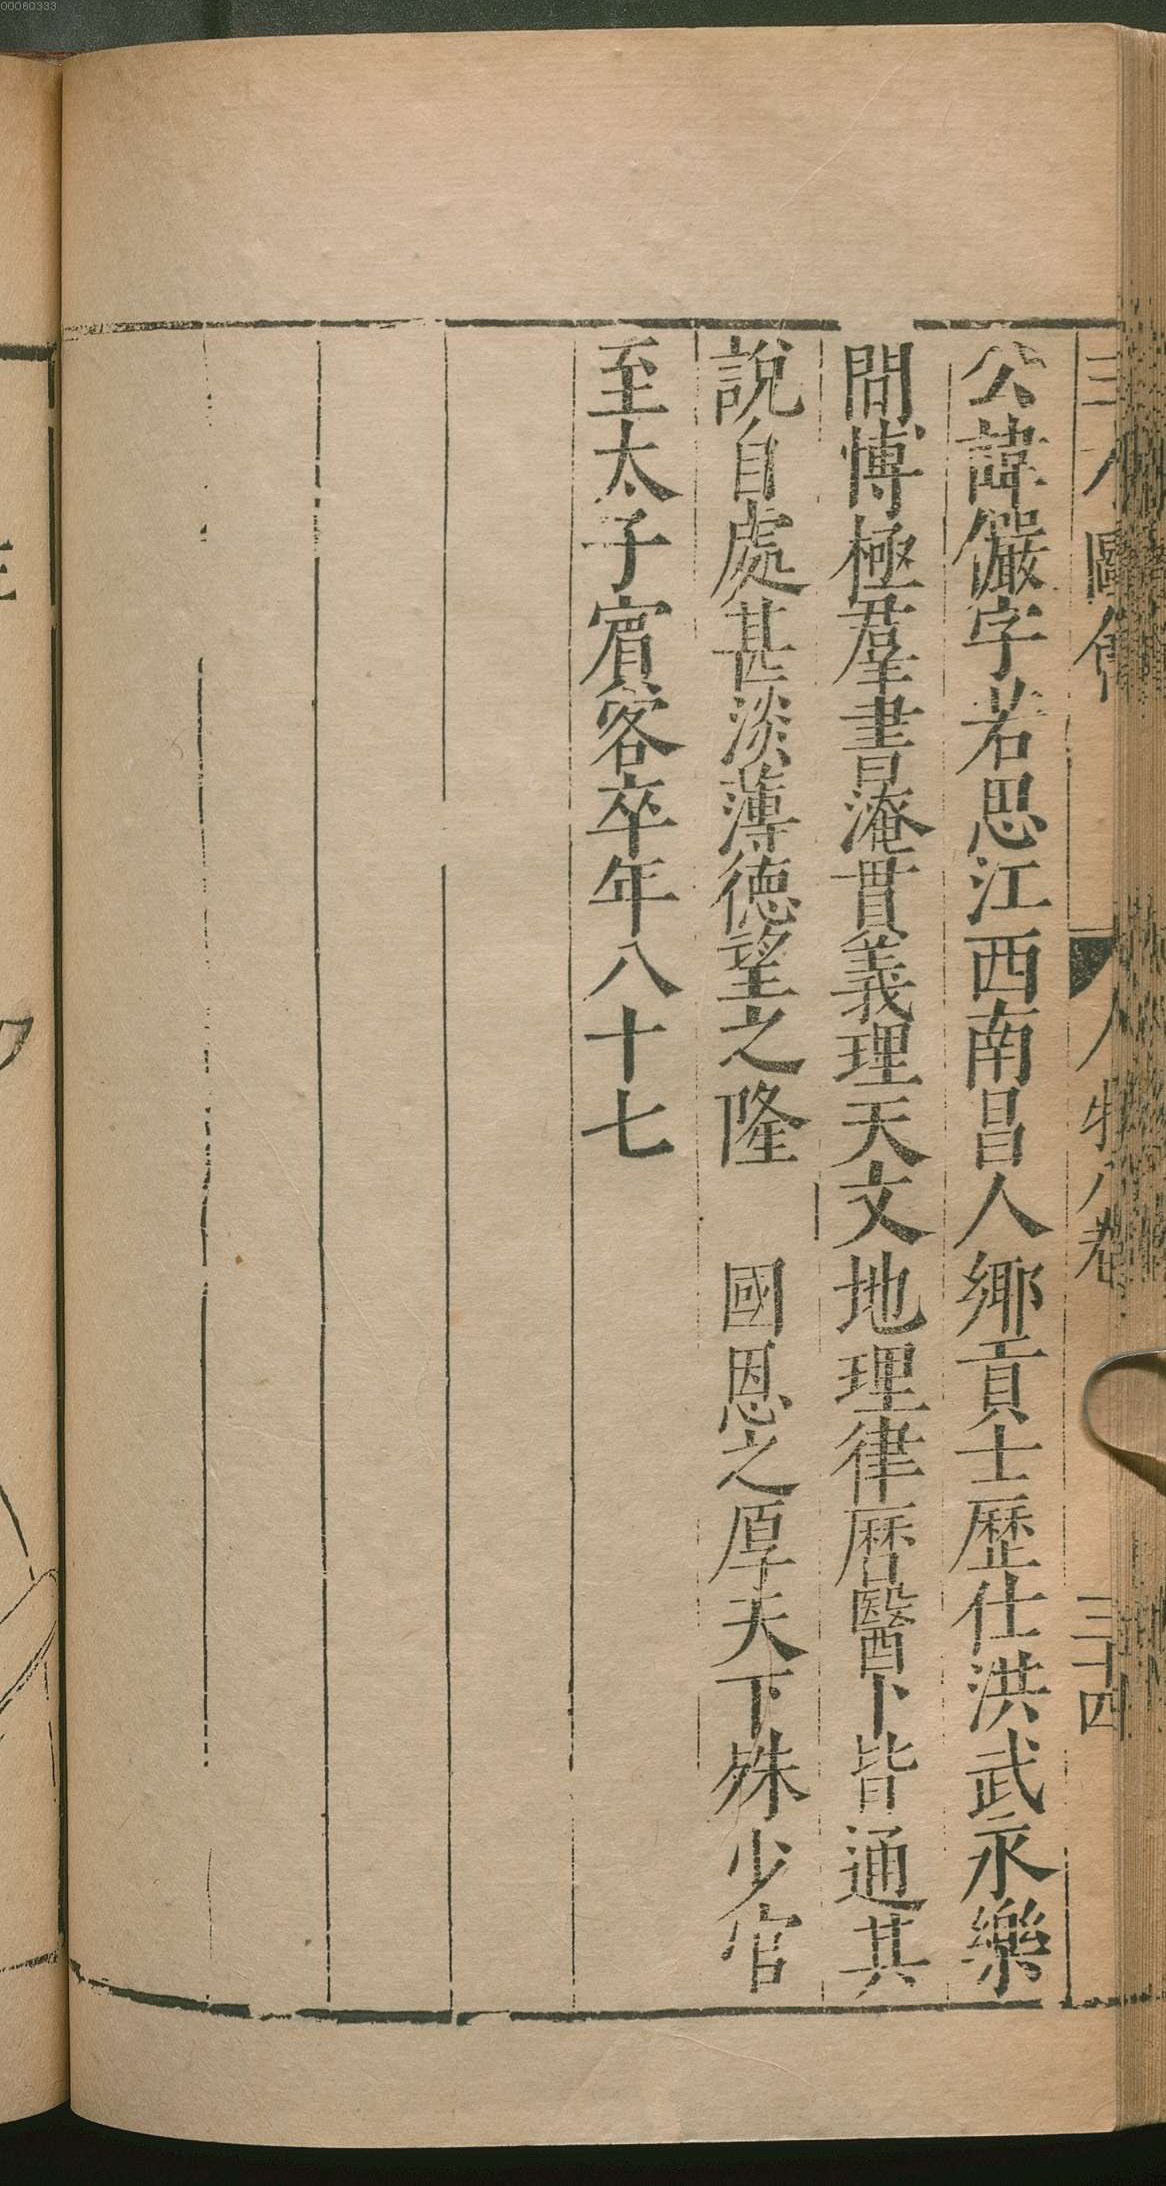 三才圖會 人物八卷 三十四
公諱儼字若思江西南昌人鄉貢士歷仕洪武永樂
間博極羣書淹貫義理天文地理律曆醫卜皆通其
說自處甚淡薄德望之隆 國恩之厚天下殊少官
至太子賓客卒年八十七
00060333